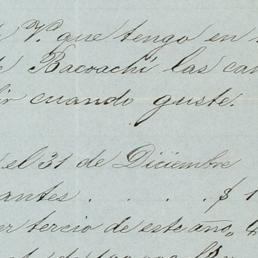 V. que tengo en
Bacoachi las
cuando guste.
el 31 de Diciembre
antes . . . . . $ 1
tercio de este año,